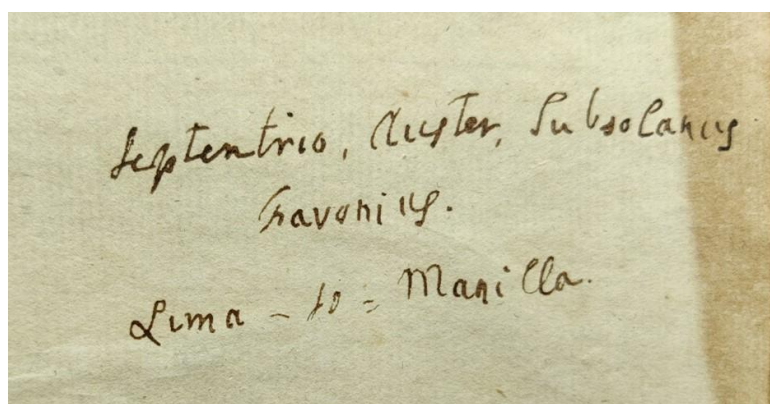 Septentrio, Auster, Subsolanus
Favonius.
Lima - 10 = Manilla.